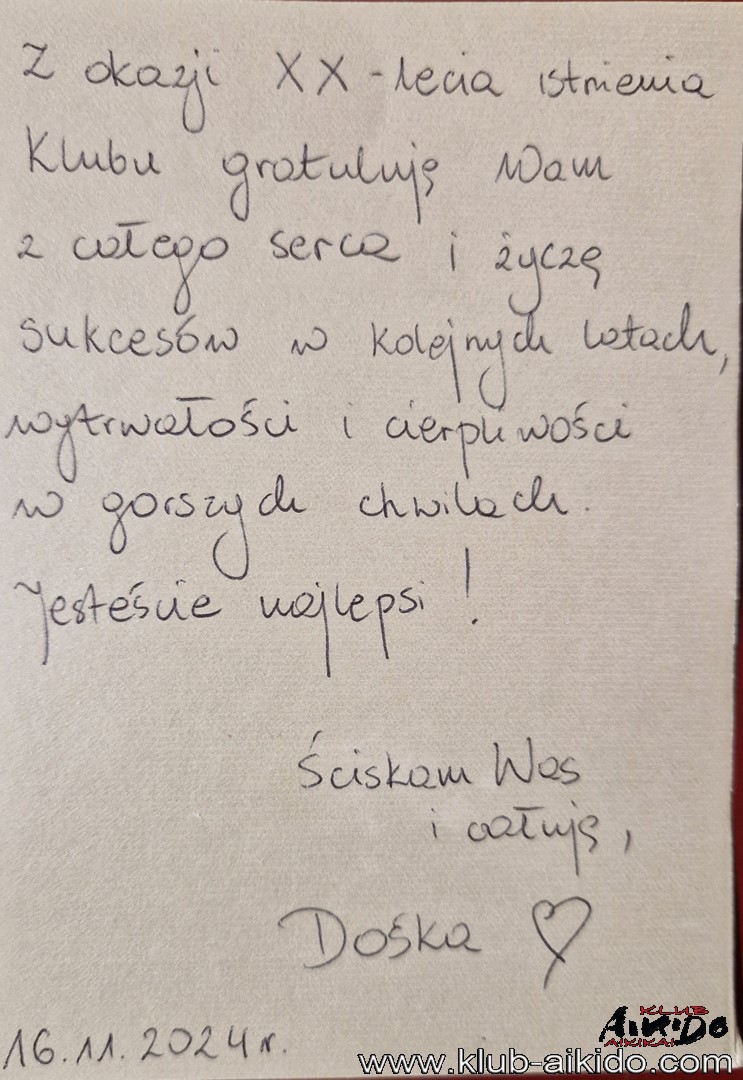 Z okazji XX-lecia istnienia
Klubu gratuluję Wam
z całego serca i życzę
sukcesów w kolejnych latach,
wytrwałości i cierpliwości
w gorszych chwilach.
Jesteście najlepsi!
Ściskam Was
i całuję,
Dośka ♡
16.11.2024 r.
KLUB
AIKIDO
AIKIKAI
www.klub-aikido.com